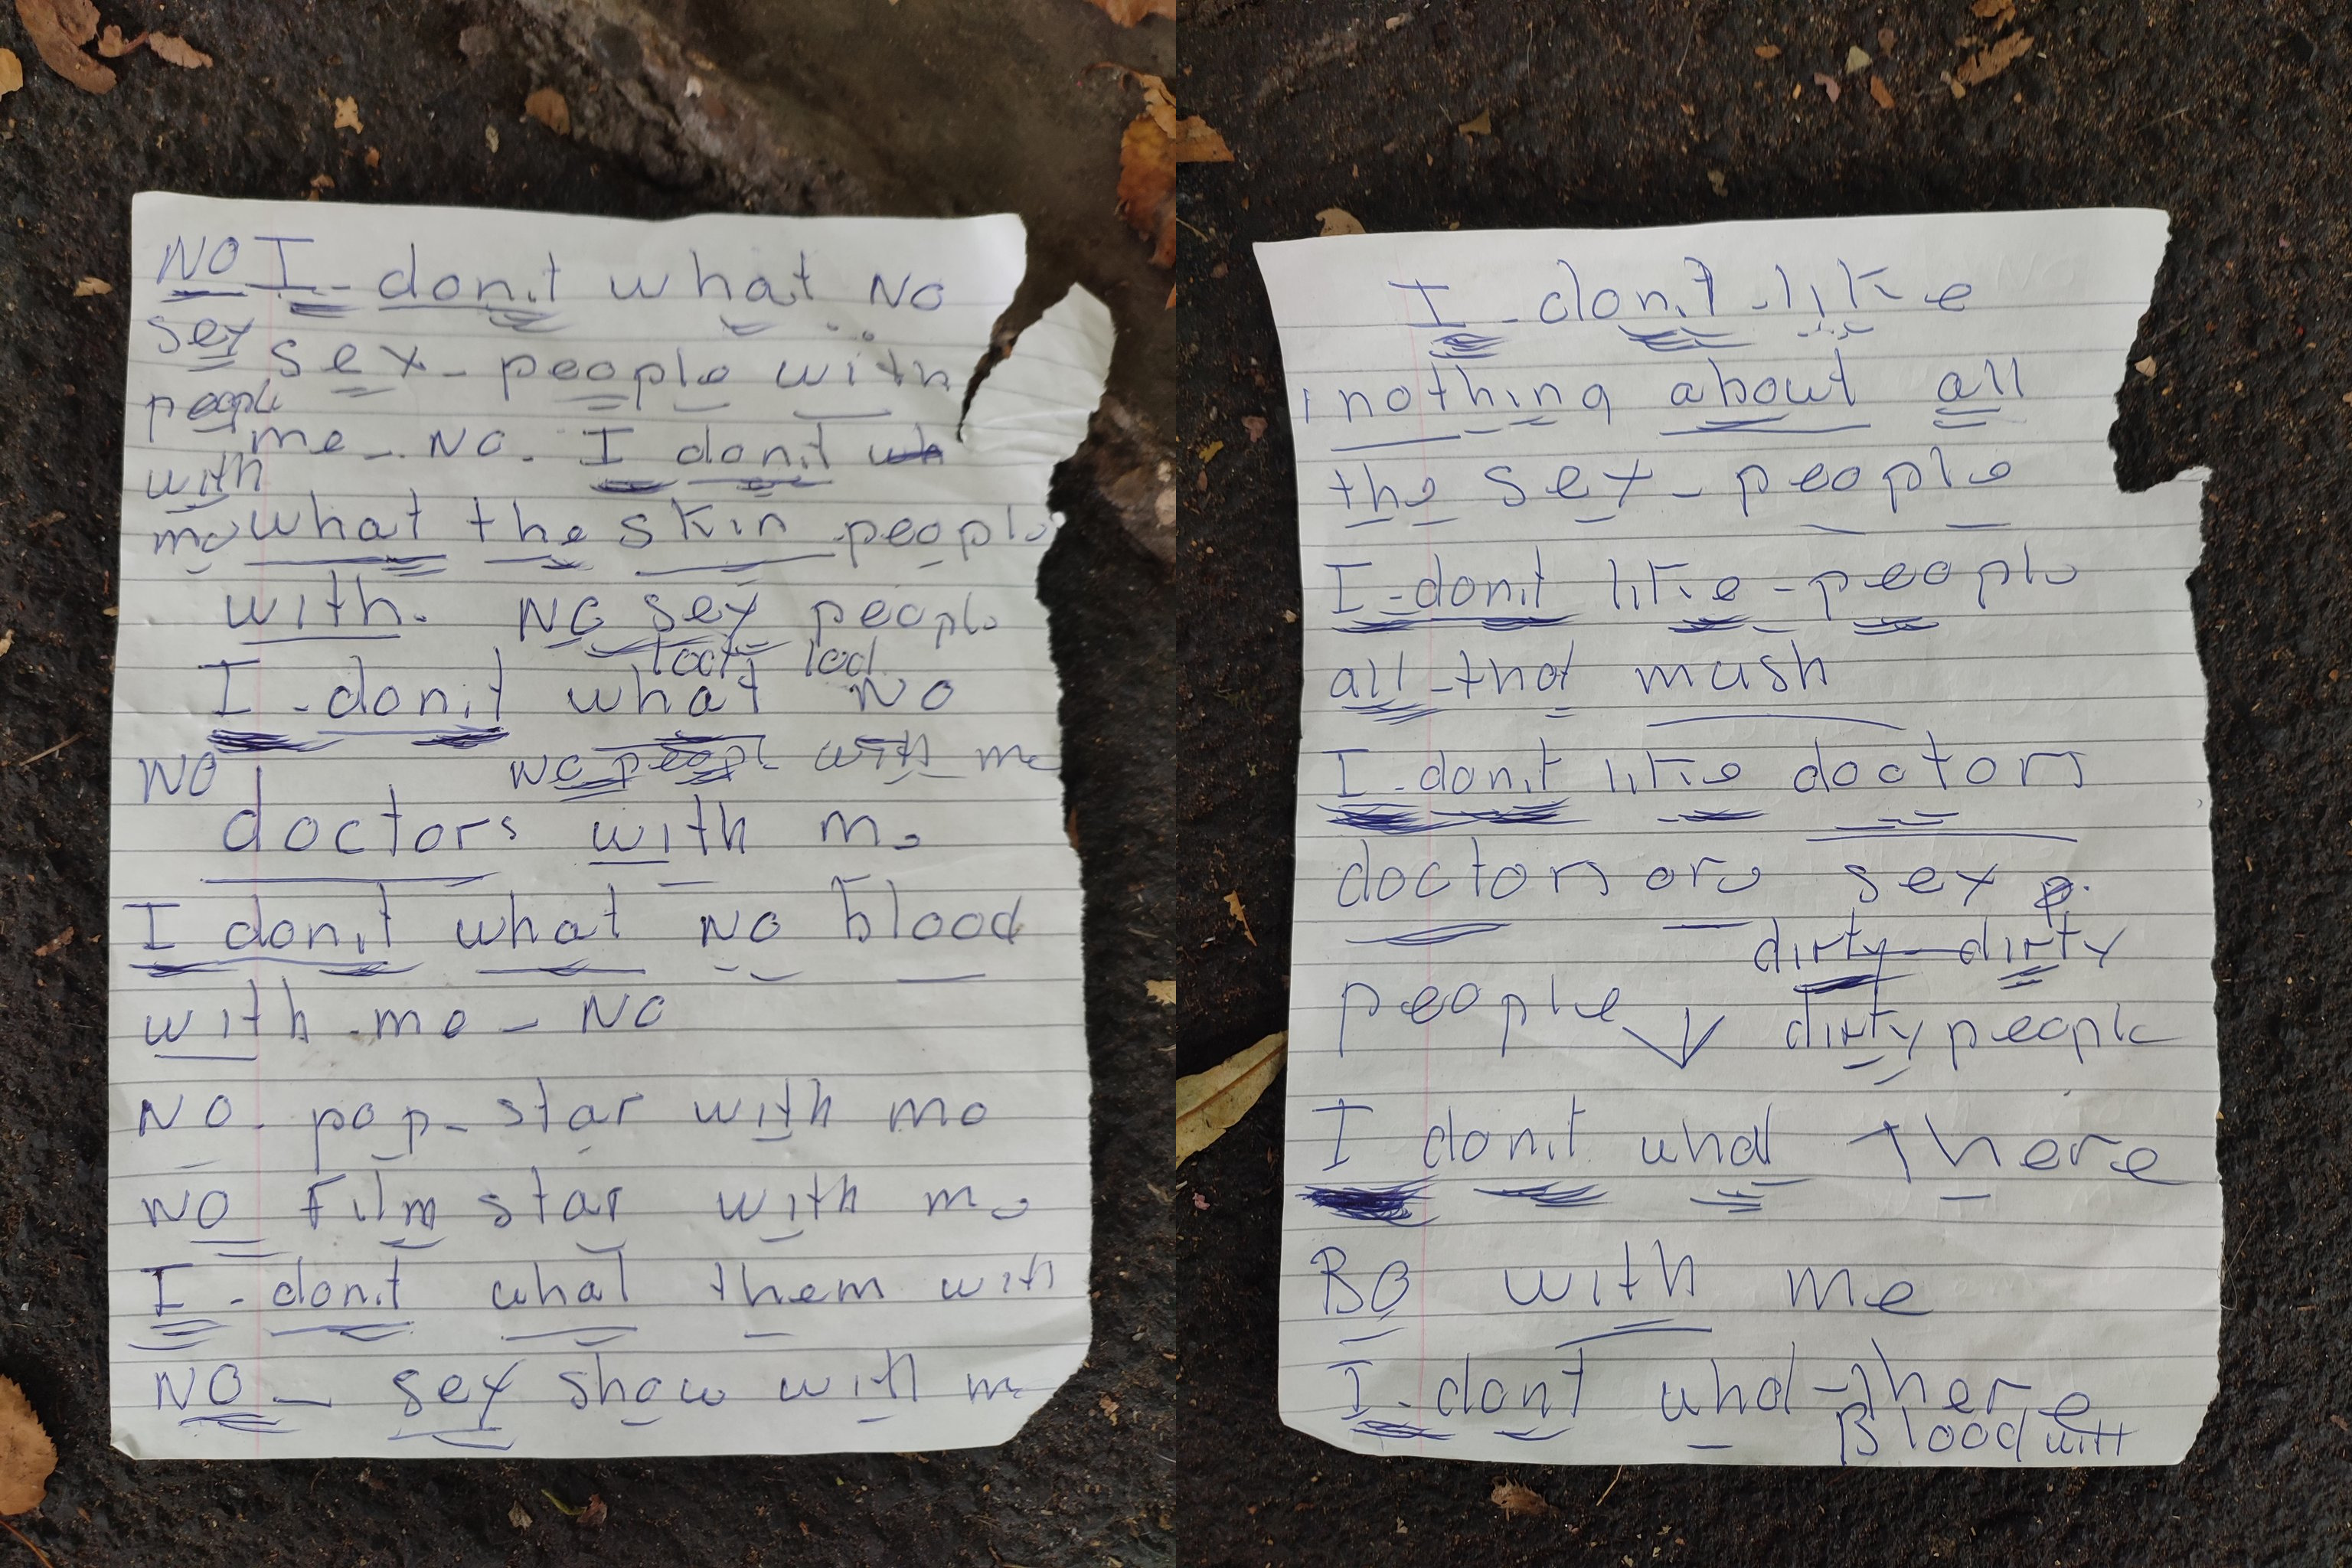 NO I - don,t what NO
sex sex - people with
people me - NO. I don,t wh
with
me what the skin people
with. NO sex people
I - don,t what NO
NO NO people with me
doctors with me
I don,t what NO blood
with - me - NO
NO - pop - star with me
NO Film star with me
I - don,t what them with
NO - sex show with me
I - don,t - like
nothing about all
the sex - people
I - don,t like - people
all - that mush
I - don,t like doctors
doctors are sex p.
dirty - dirty
people dirty people
I don,t what There
BO with me
I - dont what - There
Blood with